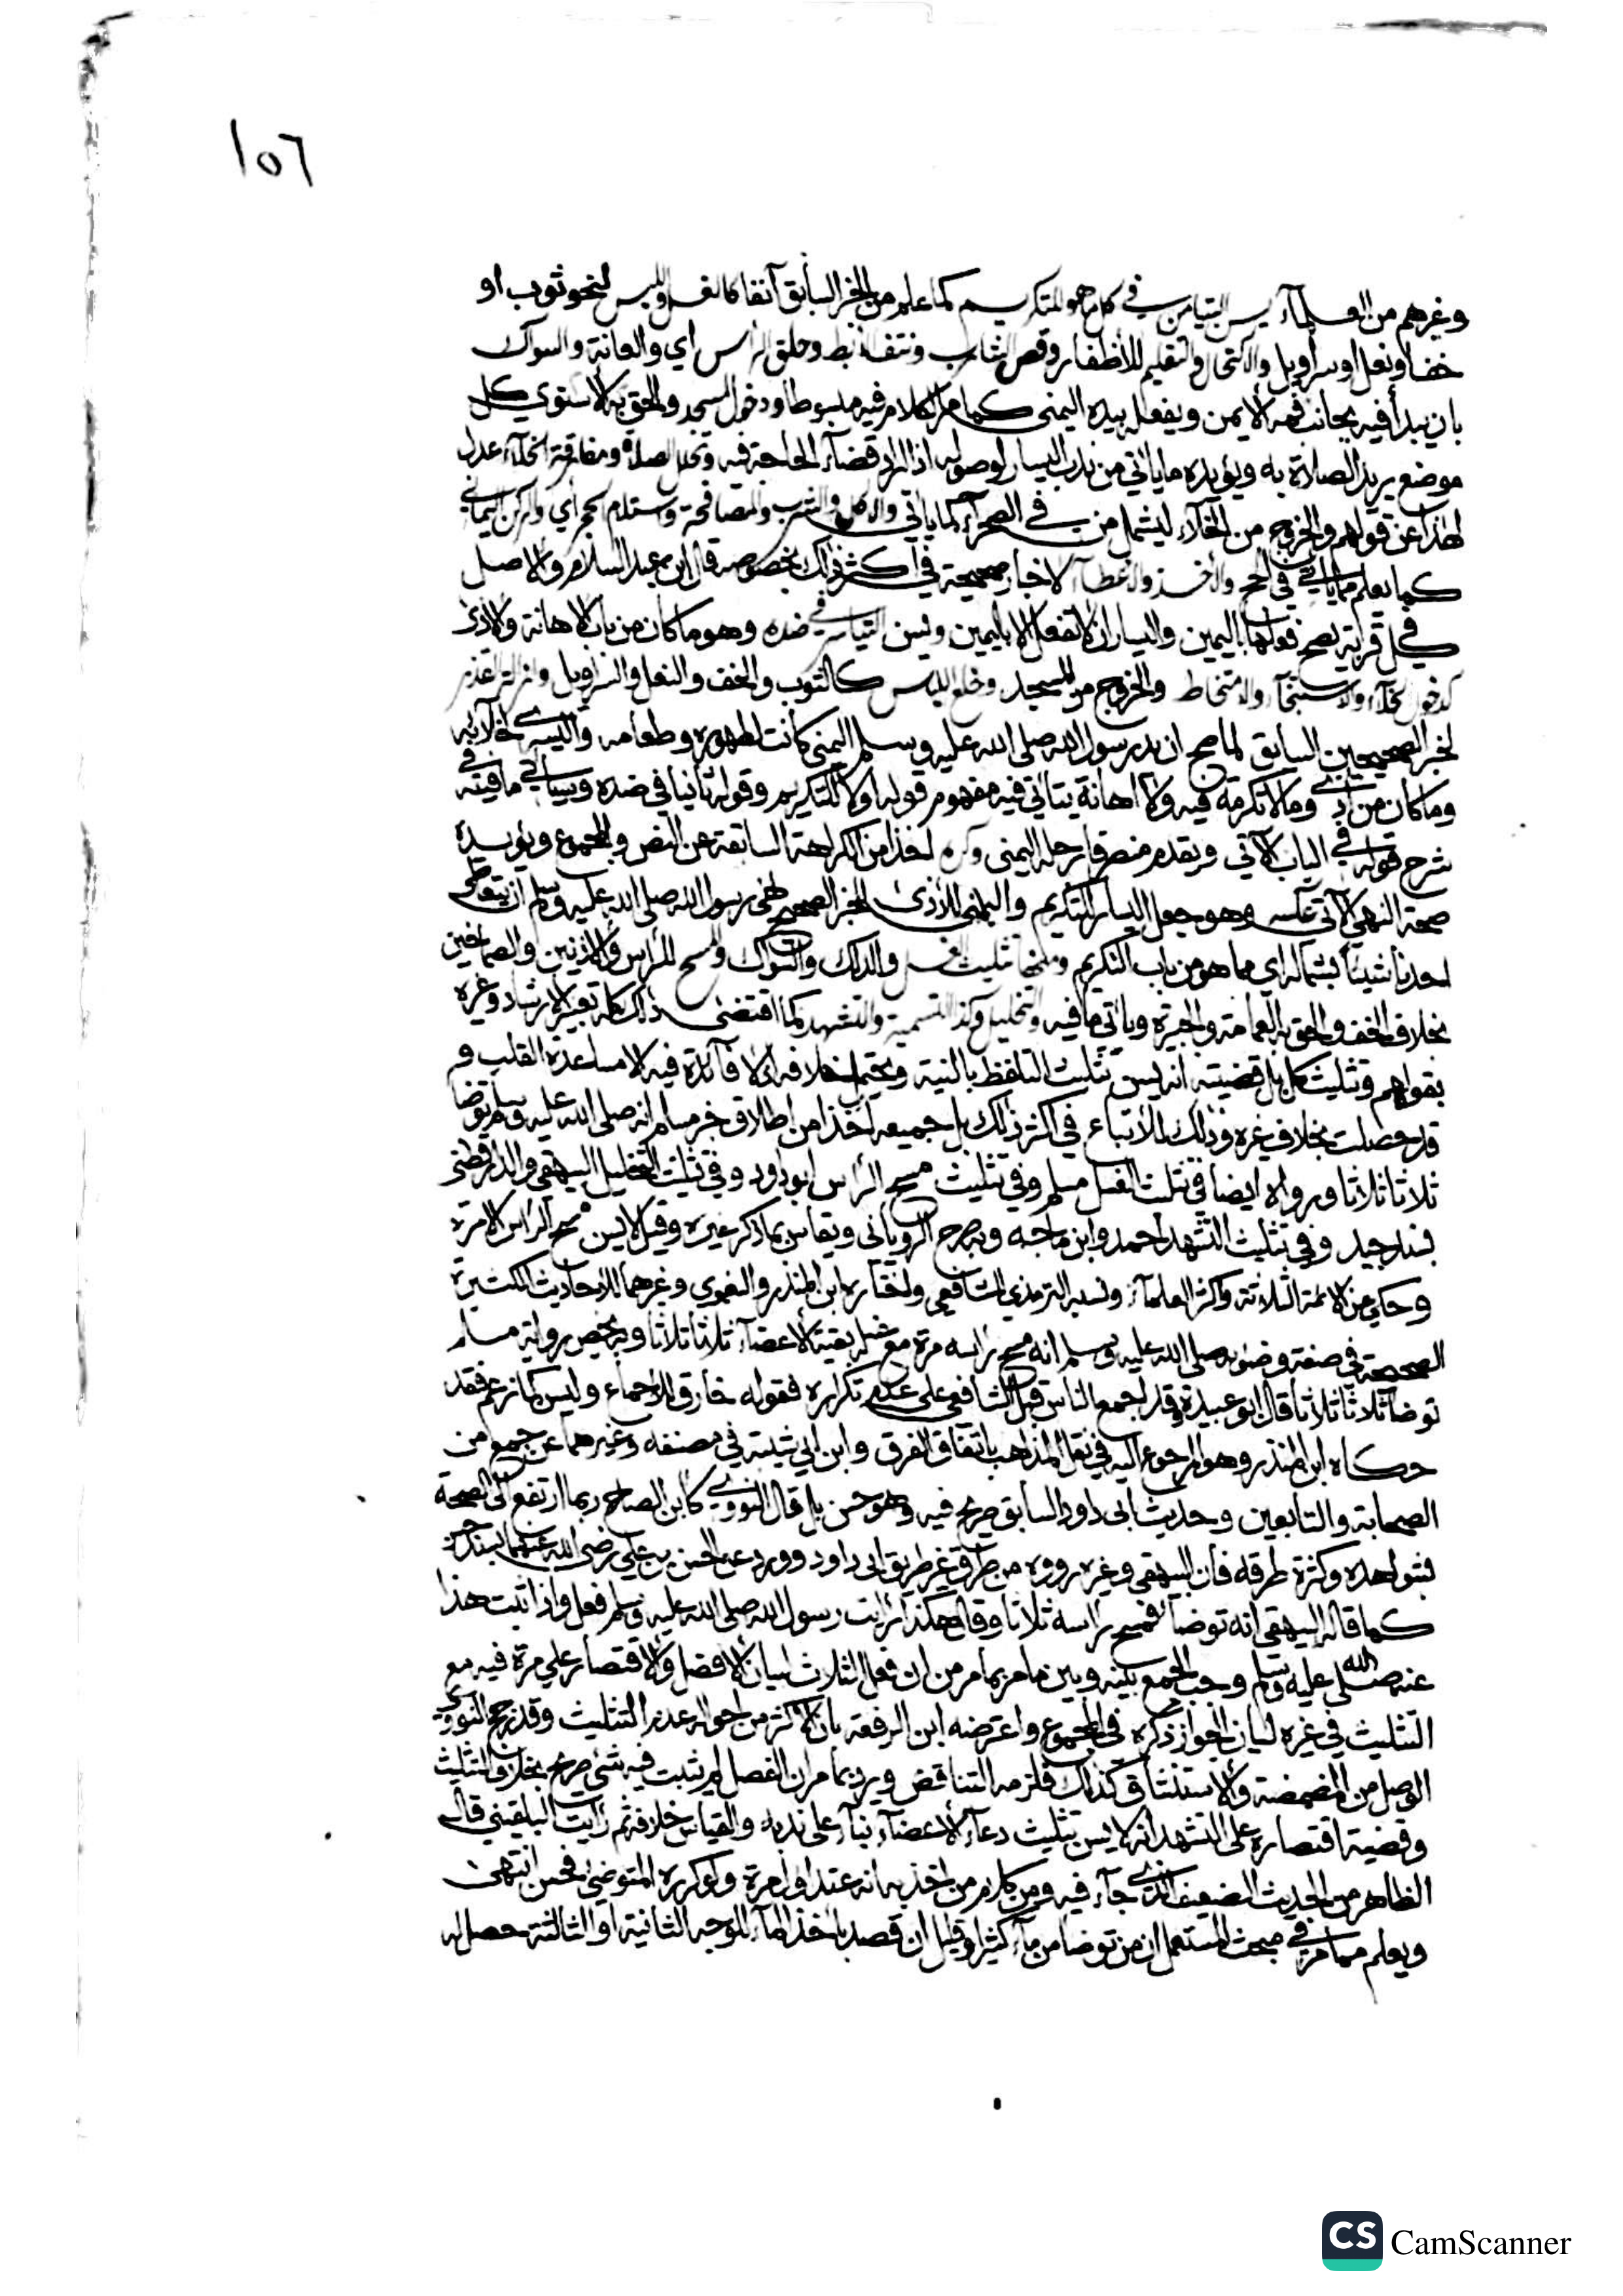 ١٥٦
وغيرهم من العلماء يسن التيامن في كل ما هو للتكريم كما علم من الخبر السابق آنفا كالغسل واللبس لنحو ثوب او
خف او نعل او سراويل والاكتحال والتقليم للأظفار وقص الشارب ونتف الابط وحلق الراس اي والعانة والسواك
بان يبدأ فيه بجانب فمه الايمن ويفعله بيده اليمنى كما مر الكلام فيه مبسوطا ودخول المسجد والحق به الاسنوي كل
موضع يريد الصلاة به ويؤيده ما ياتي من ندب اليسار لوصوله اذا اراد قضاء الحاجة فيه وتحلل الصلاة ومفارقة الخلاء عدل
لهذا عن قولهم والخروج من الخلاء ليشمل من في الصحراء كما ياتي والاكل والشرب والمصافحة واستلام الحجر اي والركن اليماني
كما يعلم مما ياتي في الحج والاخذ والاعطاء لاخبار صحيحة في اكثر ذلك بخصوصه قال ابن عبد السلام والاصل
في كل قربة يصح فعلها باليمين واليسار ان لا تفعل الا باليمين ويسن التياسر في ضده وهو ما كان من باب الاهانة والاذى
كدخول الخلاء والاستنجاء والامتخاط والخروج من المسجد وخلع اللباس كالثوب والخف والنعل والسراويل وازالة القذر
لخبر الصحيحين السابق لما صح ان يد رسول الله صلى الله عليه وسلم اليمنى كانت لطهوره وطعامه واليسرى لخلائه
وما كان من اذى وما لا تكرمة فيه ولا اهانة يتاتي فيه مفهوم قوله اولا للتكريم وقوله ثانيا في ضده وسياتي ما فيه في
شرح قوله في الباب الآتي ويقدم منصرفا رجله اليمنى وكره اخذا من الكراهة السابقة عن النص والمجموع ويؤيده
صحة النهي الآتي عكسه وهو جعل اليسار للتكريم واليمنى للأذى للخبر الصحيح نهى رسول الله صلى الله عليه وسلم ان يتعاطى
احدنا شيئا بشماله اي مما هو من باب التكريم ومنها تثليث الغسل والدلك والسواك والمسح للراس والاذنين والصماخين
بخلاف الخف والحق به العمامة والجبيرة وياتي ما فيه والتخليل وكذا التسمية والتشهد كما اقتضى ذلك كله تعبير الارشاد وغيره
بقولهم وتثليث كل بل قضيته انه يسن تثليث التلفظ بالنية ويحتمل خلافه اذ لا فائدة فيه الا مساعدة القلب و
قد حصلت بخلاف غيره وذلك للاتباع في اكثر ذلك بل جميعه اخذا من اطلاق خبر مسلم انه صلى الله عليه وسلم توضا
ثلاثا ثلاثا ورواه ايضا في تثليث الغسل مسلم وفي تثليث مسح الراس ابو داود وفي تثليث التخليل البيهقي والدارقطني
بسند جيد وفي تثليث التشهد احمد وابن ماجه وبه صرح الروياني ويقاس بما ذكر غيره وقيل لا يسن مسح الراس الا مرة
وحكي عن الائمة الثلاثة واكثر العلماء ونسبه الترمذي للشافعي واختاره ابن المنذر والبغوي وغيرهما للاحاديث الكثيرة
الصحيحة في صفة وضوئه صلى الله عليه وسلم انه مسح راسه مرة مع غسل بقية الاعضاء ثلاثا ثلاثا وبه يخص رواية مسلم
توضا ثلاثا ثلاثا قال ابو عبيدة وقد اجمع الناس قبل الشافعي على عدم تكراره فقوله خارق للاجماع وليس كما زعم فقد
حكاه ابن المنذر وهو المرجوع اليه في نقل المذاهب باتفاق الفرق وابن ابي شيبة في مصنفه وغيرهما عن جمع من
الصحابة والتابعين وحديث ابي داود السابق صريح فيه وهو حسن بل قال النووي كابن الصلاح ربما ارتفع الى الصحة
بشواهده وكثرة طرقه فان البيهقي وغيره رووه من طرق غير طريق ابي داود وورد عن الحسن بن علي رضي الله عنهما بسند حسن
كما قاله البيهقي انه توضا فمسح براسه ثلاثا وقال هكذا رايت رسول الله صلى الله عليه وسلم فعل واذا ثبت هذا
عنه صلى الله عليه وسلم وجب الجمع بينه وبين ما مر بما مر من ان فعل الثلاث لبيان الافضل والاقتصار على مرة فيه مع
التثليث في غيره لبيان الجواز ذكره في المجموع واعترضه ابن الرفعة بان الاكثر من احواله عدم التثليث وقد رجح النووي
الوصل من المضمضة والاستنشاق كذلك فلزمه التناقض ويرد بما مر ان الفصل لم يثبت فيه شي صريح بخلاف التثليث
وقضية اقتصاره على التشهد انه لا يسن تثليث دعاء الاعضاء بناء على ندبه والقياس خلافه ثم رايت البلقيني قال
الظاهر من الحديث الضعيف الذي جاء فيه ومن كلام من اخذ به انه عند اول مرة ولو كرره المتوضئ فحسن انتهى
ويعلم مما مر في مبحث المستعمل ان من توضا من ماء كثير او قليل ان قصد باخذ الماء للوجه الثانية او الثالثة حصل له
CS CamScanner